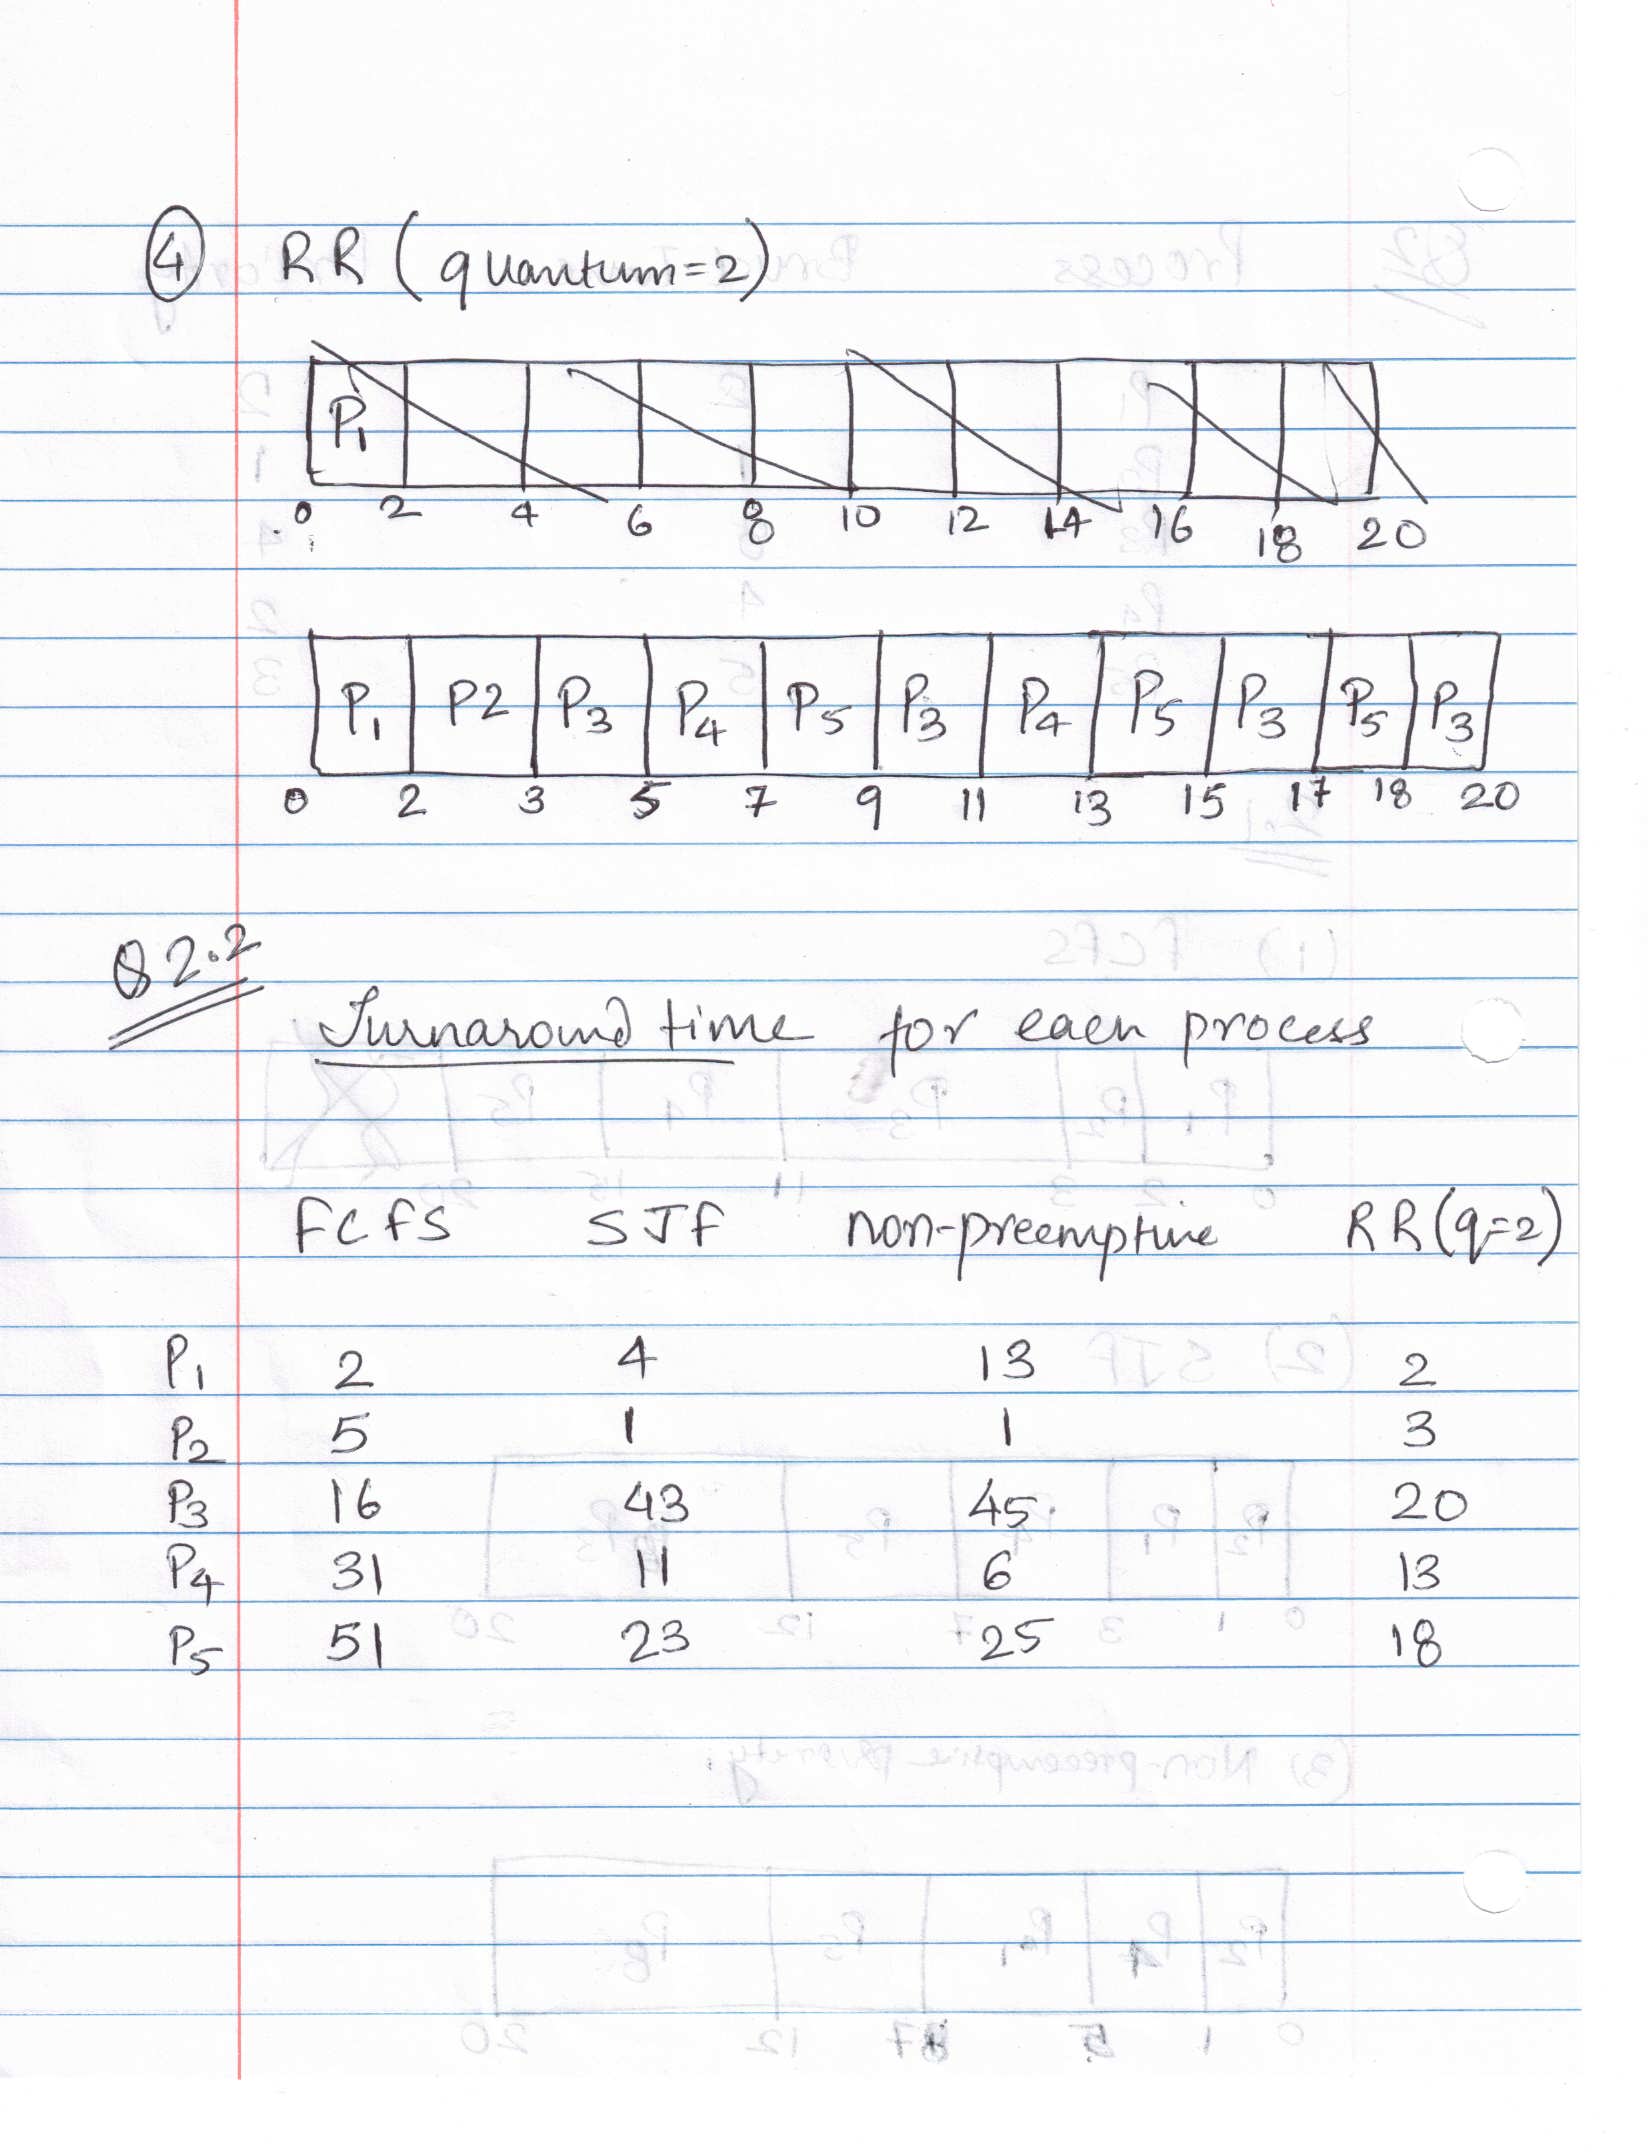 4 RR (quantum=2)
P1
0 2 4 6 8 10 12 14 16 18 20
P1 P2 P3 P4 P5 P3 P4 P5 P3 P5 P3
0 2 3 5 7 9 11 13 15 17 18 20
Q2.2
Turnaround time for each process
FCFS SJF non-preemptive RR(q=2)
P1 2 4 13 2
P2 5 1 1 3
P3 16 43 45 20
P4 31 11 6 13
P5 51 23 25 18